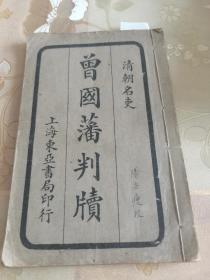 清朝名吏
曾國藩判牘
上海東亞書局印行